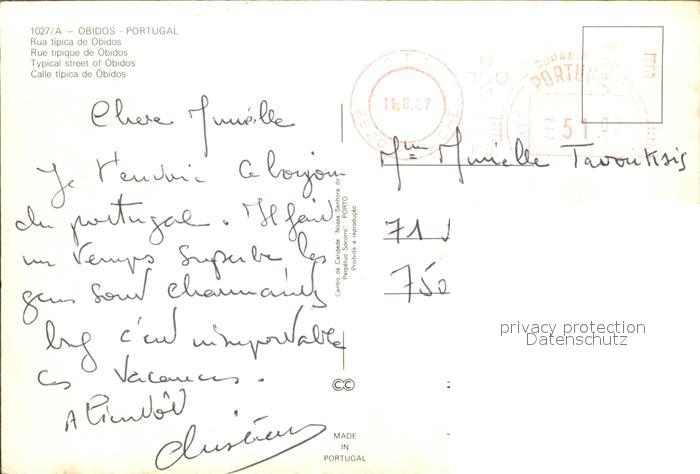 1027/A — ÓBIDOS - PORTUGAL
Rua típica de Óbidos
Rue tipique de Óbidos
Typical street of Óbidos
Calle típica de Óbidos
CTT
11.8.87
CORREIO DE
PORTUGAL
51.0
Chere Murielle
Je t'envoie le bonjour
du portugal. Il fait
un temps superbe les
gens sont charmants
bref c'est insupportable
ces vacances.
A bientôt
Mme Murielle Tavoukjis
71
750
Centro de Caridade "Nossa Senhora do
Perpétuo Socorro" - PORTO
Proibida a reprodução
CC
MADE
IN
PORTUGAL
privacy protection
Datenschutz